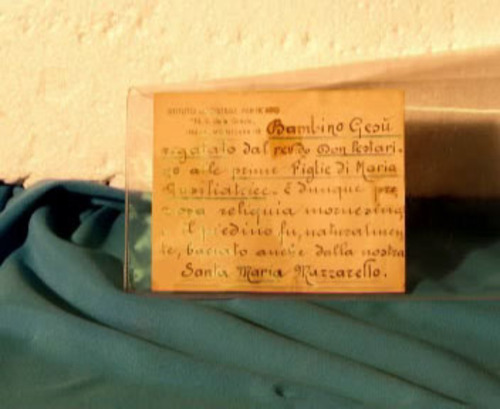 Bambino Gesù
regalato dal rev.do Don Pestari-
no alle prime Figlie di Maria
Ausiliatrice. È dunque pre
ziosa reliquia mornesina
e il piedino fu, naturalmen
te, baciato anche dalla nostra
Santa Maria Mazzarello.